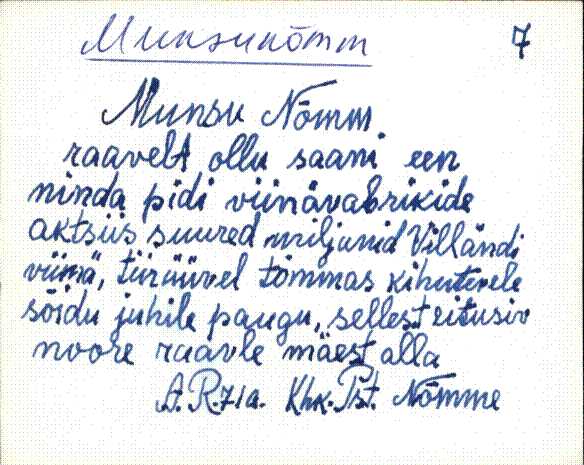 Munsunõmm
7
Munsu Nõmm
raavelt ollu saani een
ninda pidi viinävabrikide
aktsiis suured miljunid Villändi
viimä, tüüüvel tõmmas kihutevele
sõidu juhile paugu, sellest ritusiv
noore raavle mäest alla
A.R. 71a. Khk. Pst. Nõmme